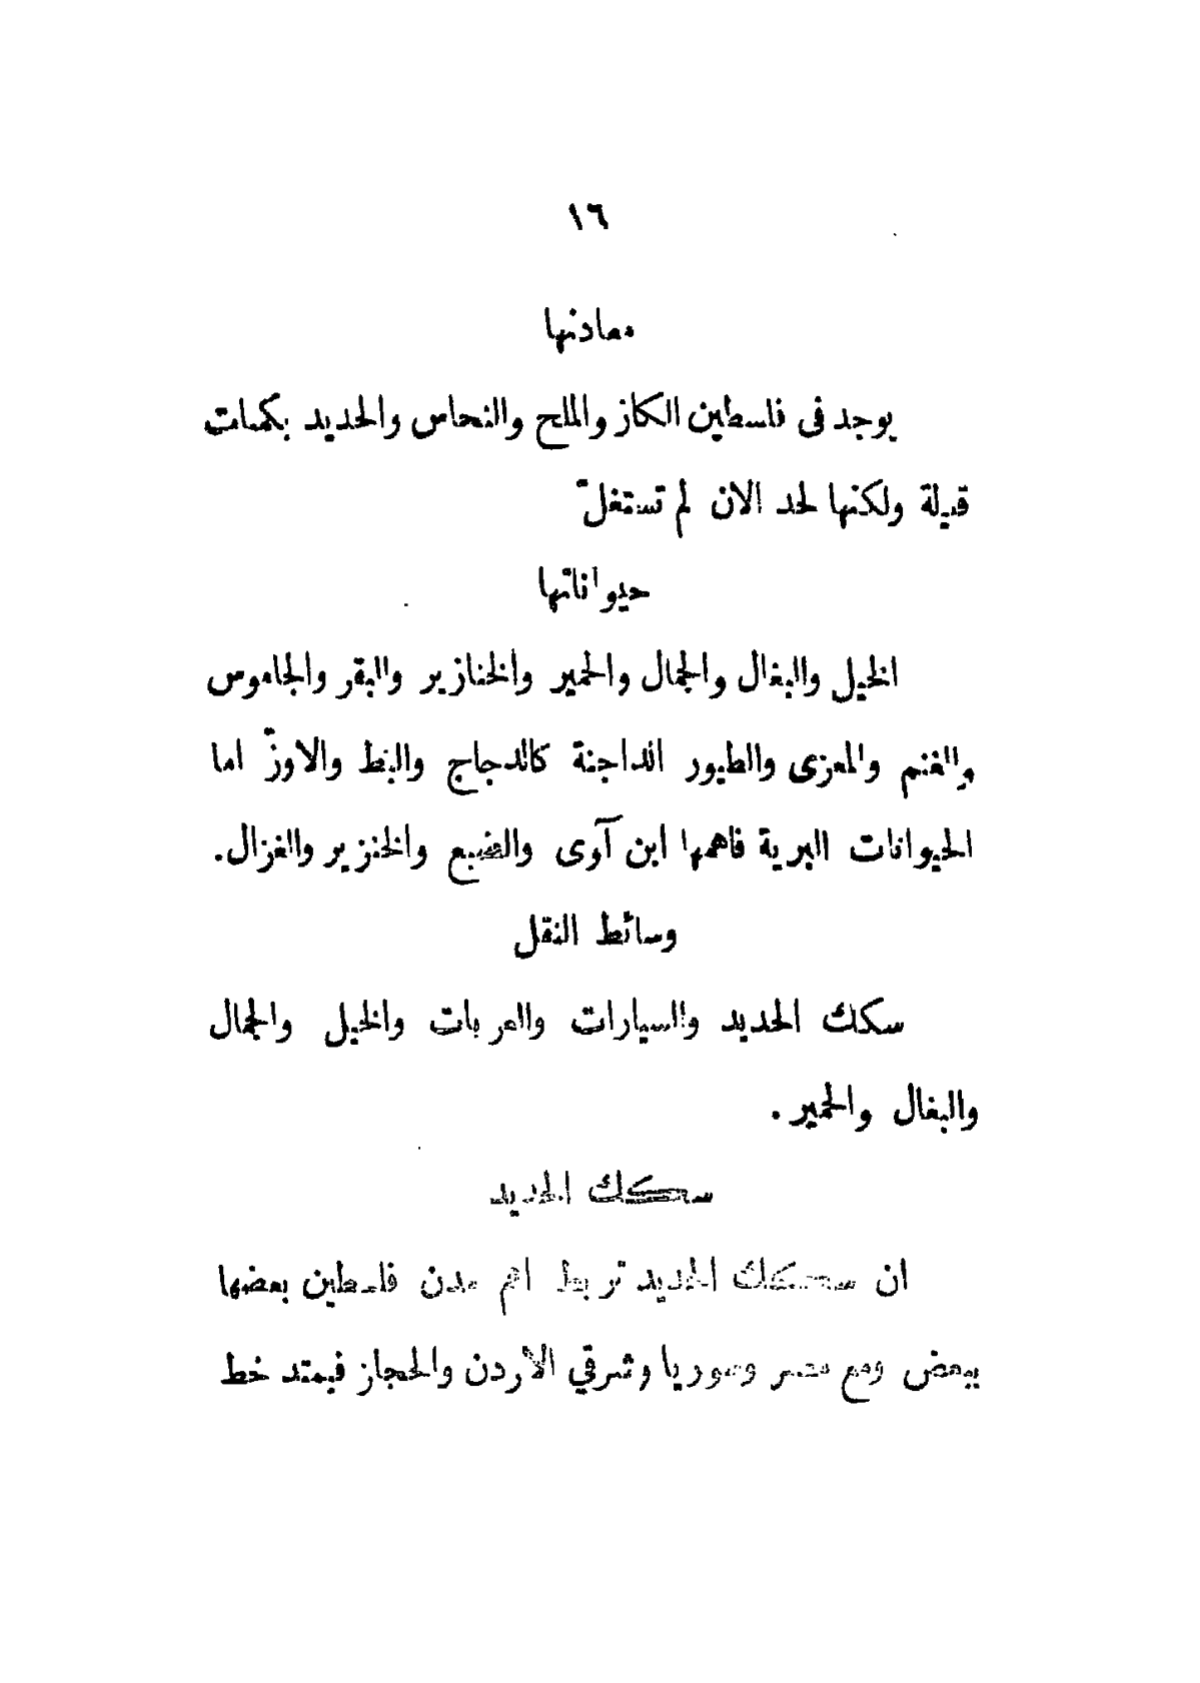 ١٦
معادنها
يوجد فى فلسطين الكاز والملح والنحاس والحديد بكميات
قليلة ولكنها لحد الان لم تستغلّ
حيواناتها
الخيل والبغال والجمال والحمير والخنازير والبقر والجاموس
والغنم والمعزى والطيور الداجنة كالدجاج والبط والاوزّ اما
الحيوانات البرية فاهمها ابن آوى والضبع والخنزير والغزال.
وسائط النقل
سكك الحديد والسيارات والعربات والخيل والجمال
والبغال والحمير .
سكك الحديد
ان سكك الحديد تربط اهم مدن فلسطين بعضها
ببعض ومع مصر وسوريا وشرقي الاردن والحجاز فيمتد خط